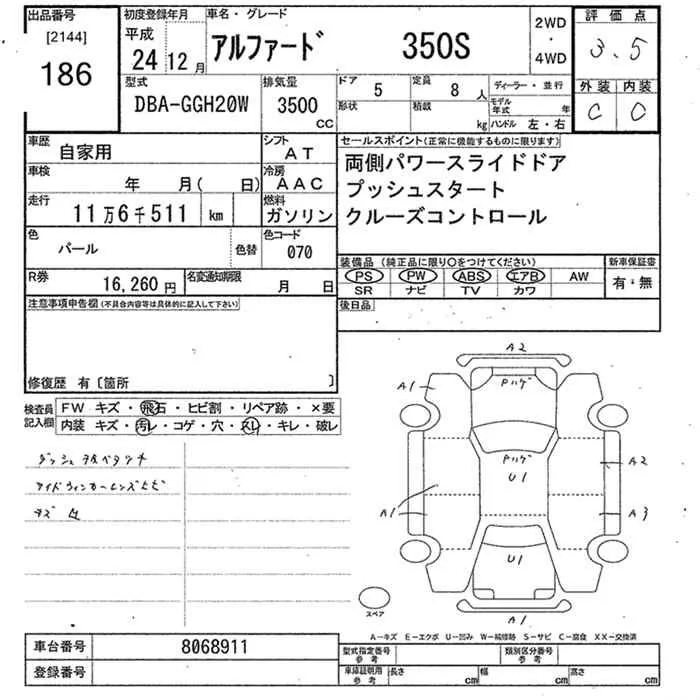 出品番号
[2144]
186
初度登録年月
平成
24 12月
車名・グレード
アルファード 350S
2WD
・
4WD
評価点
3.5
外装 内装
C C
型式
DBA-GGH20W
排気量
3500
CC
ドア 5
形状
定員 8 人
積載 kg
ディーラー・並行
モデル年式 年
ハンドル 左・右
車歴
自家用
シフト
AT
車検
年 月( 日)
冷房
AAC
走行
11万6千511 km
燃料
ガソリン
色
パール
色替
色コード
070
R券
16,260 円
名変通知期限
月 日
セールスポイント(正常に機能するものに限ります)
両側パワースライドドア
プッシュスタート
クルーズコントロール
装備品(純正品に限り○をつけてください)
PS PW ABS エアB AW
SR ナビ TV カワ
新車保証書
有・無
後日品
注意事項申告欄(不具合内容等は具体的に記入して下さい)
修復歴 有〔箇所 〕
検査員
記入欄
FW キズ・飛石・ヒビ割・リペア跡・×要
内装 キズ・汚レ・コゲ・穴・スレ・キレ・破レ
A2
A1
Pハゲ
Pハゲ
U1
A2
A1
A3
U1
A1
スペア
A−キズ E−エクボ U−凹み W−補修跡 S−サビ C−腐食 XX−交換済
車台番号 8068911
登録番号
型式指定番号
参考
類別区分番号
参考
車庫証明用
参考
長さ cm
幅 cm
高さ cm